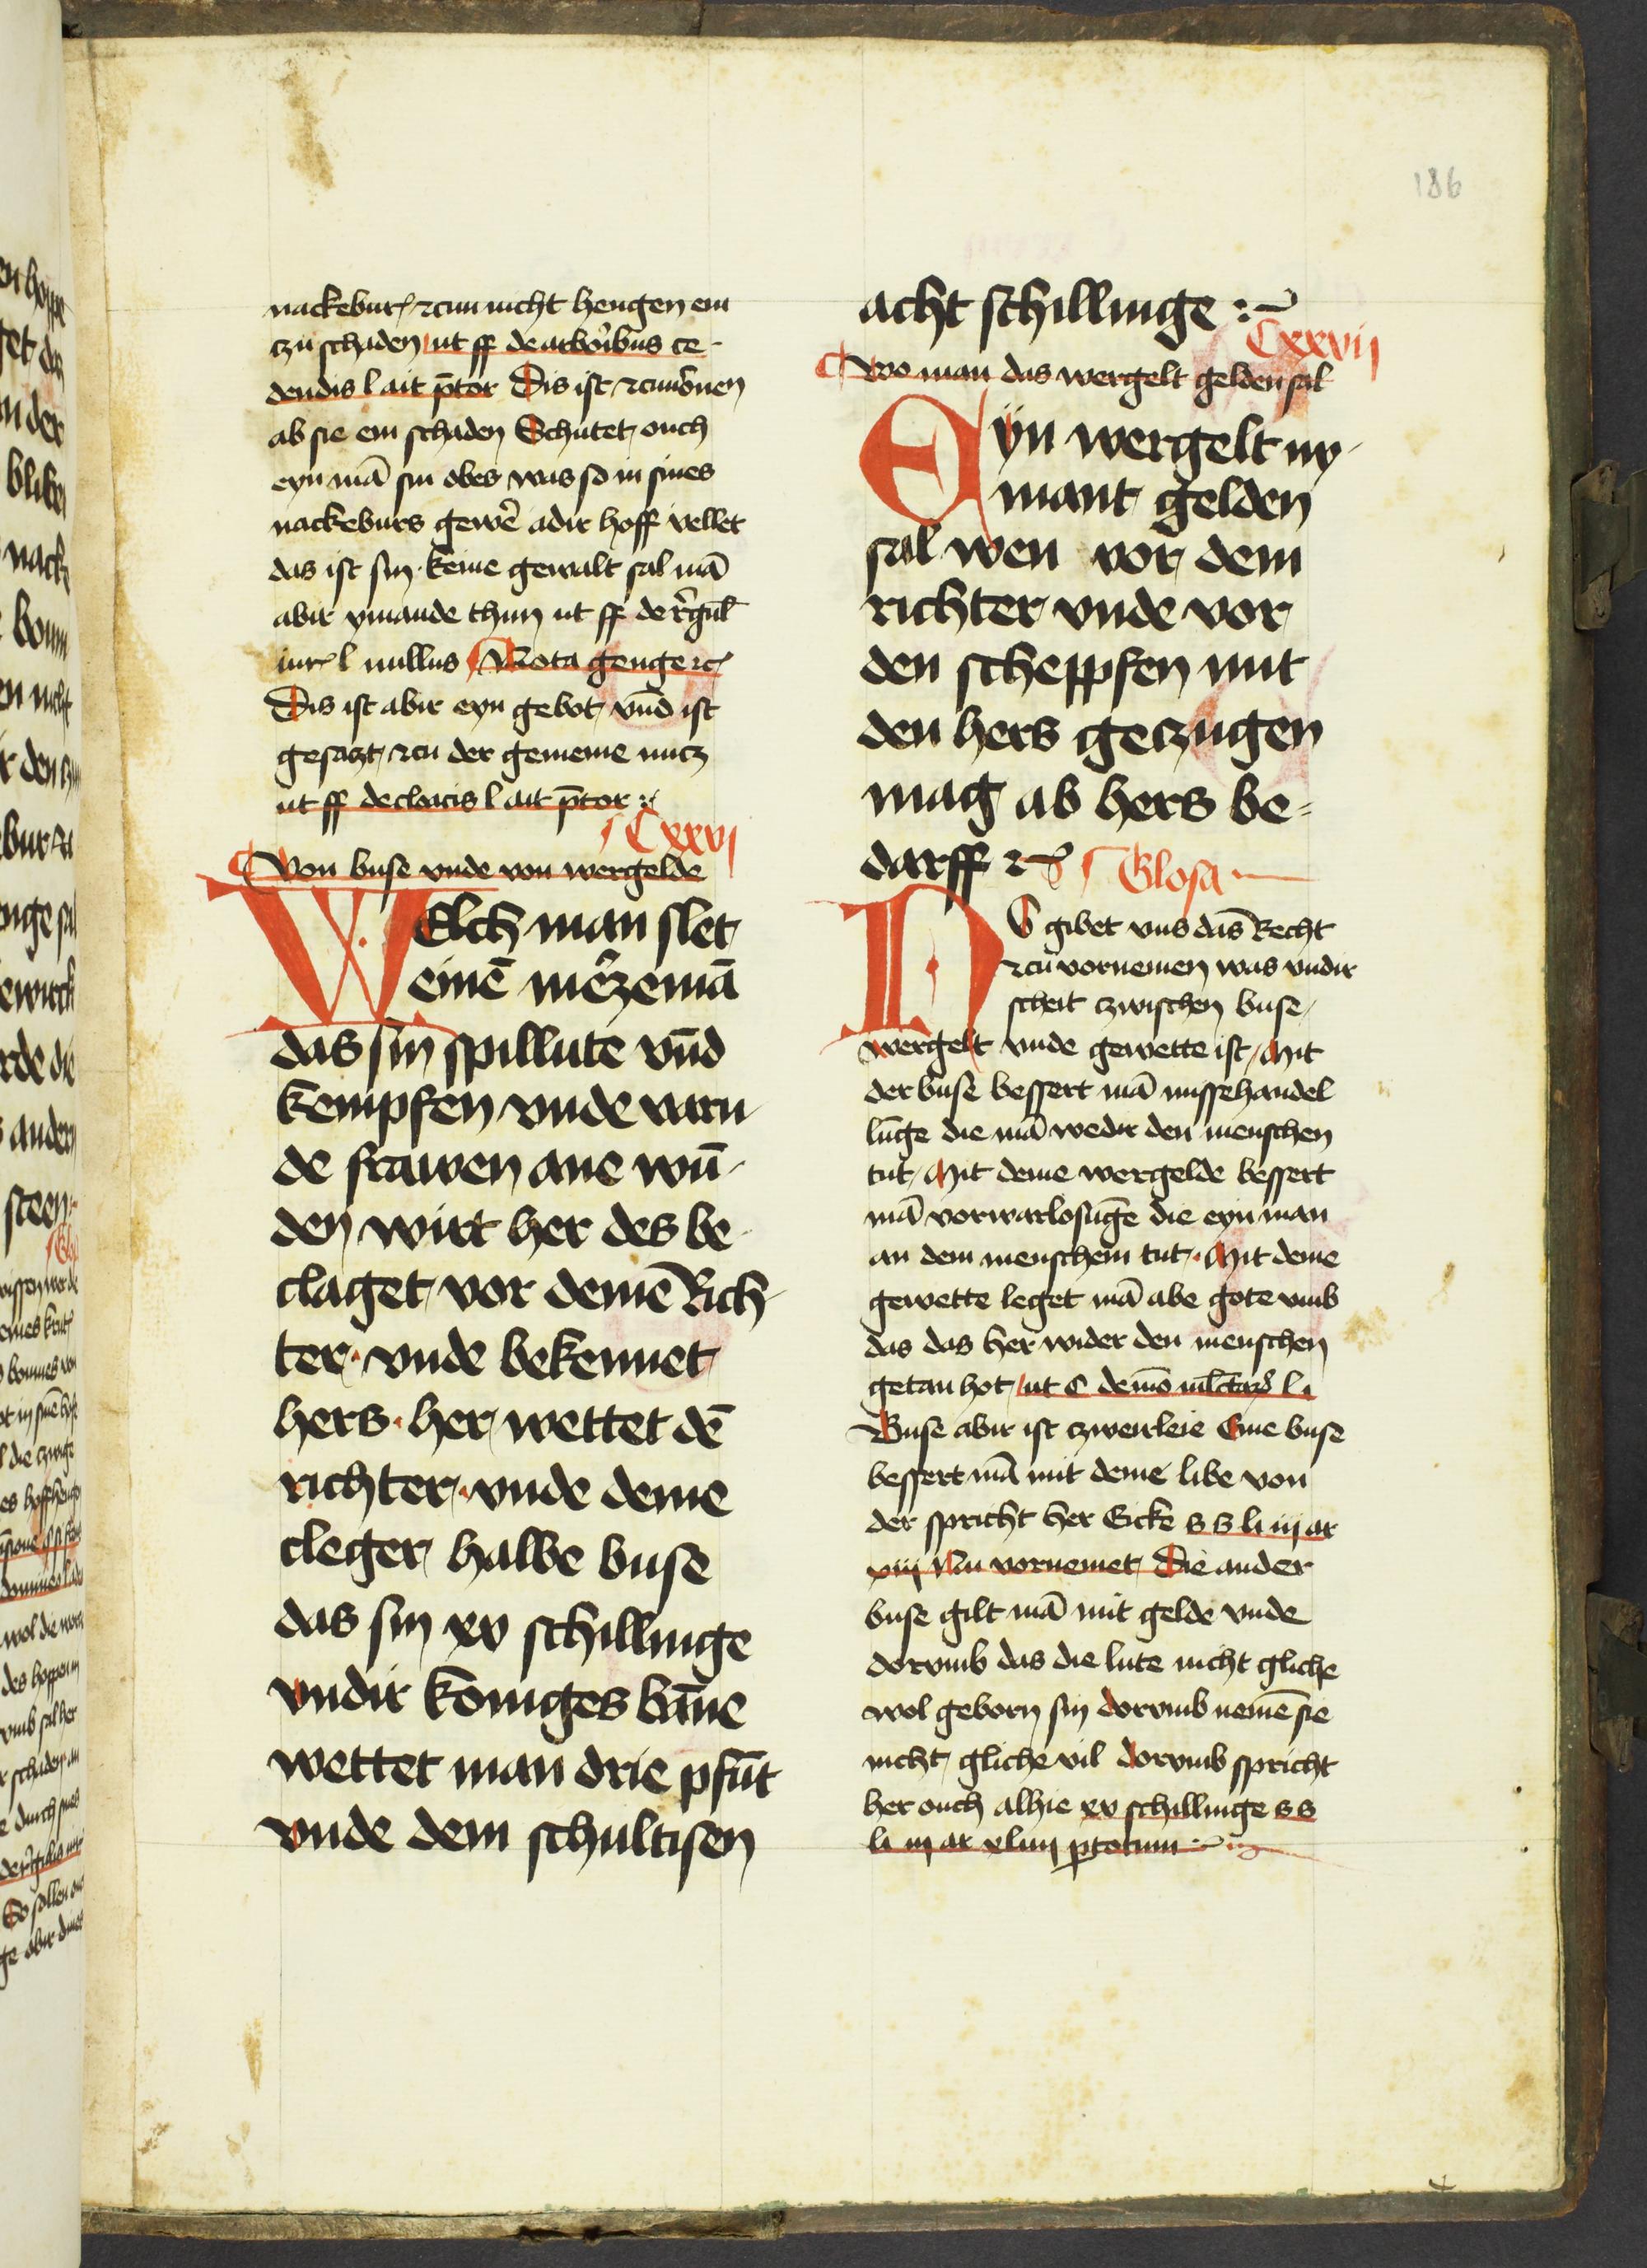 186
nackebur czun nicht hengen em
czu schaden ut ff de arboribus ce-
dendis l ait p̄tor Dis ist czuuornen
ab sie em schaden Schutet ouch
eyn mā sin obes was so in sines
nackeburs gewē adir hoff vellet
das ist sin keine gewalt sal mā
abir ymande thun ut ff de r̄gul
iur l nullus Nota genge ꝛc
Dis ist abir eyn gebot vn̄d ist
gesaczt czu der gemeine nucz
ut ff de cloacis l ait p̄tor
Cxxvj
Von buse vnde von wergelde
WElch man slet
einē mērzemā
das sin spillute vn̄d
kempfen vnde varn-
de frawen ane wū-
den wirt her des be-
claget vor demē Rich-
ter vnde bekennet
hers her wettet dē
richter vnde deme
cleger halbe buse
das sin xv schillinge
vndir koniges bāne
wettet man drie pfūt
vnde dem schultisen
acht schillinge
Cxxvij
Wo man das wergelt gelden sal
EYn wergelt ny-
mant gelden
sal wen vor dem
richter vnde vor
den scheppfen mit
den hers geczugen
mag ab hers be-
darff ꝛc Glosa
DS gibet vns das Recht
czu vornemen was vndir
scheit czwischen buse
wergelt vnde gewette ist Mit
der buse bessert mā missehandel
lūge die mā wedir den menschen
tut Mit deme wergelde bessert
mā vorwarlosūge die eyn man
an dem menschem tut Mit deme
gewette leget mā abe gote vmb
das das her wider den menschen
getan hot ut C de mō mlctarꝝ l i
Buse abir ist czweirleie Eine buse
bessert mā mit deme libe von
der spricht her Eicke s s li iij ar
xiij Nu vornemet Die ander
buse gilt mā mit gelde vnde
dorvmb das die lute nicht gliche
wol geborn sin dorvmb nemē sie
nicht gliche vil dorvmb spricht
her ouch alhie xv schillinge s s
li iij ar xliiij p totum